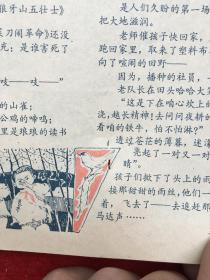 狼牙山五壮士》
菜刀闹革命》还没
完：是谁害死了
吱——吱——”
的山雀；
公鸡的啼鸣；
里是琅琅的读书
是人们久盼的第一场
把大地滋润。
老师催孩子快回家，
跑回家里，取来了塑料布
向了喧闹的田野——
因为，播种的社员，
老队长在田头哈哈大笑
“这是下在咱心坎上的
浇，越长精神；去问问夜耕的
看咱的铁牛，怕不怕淋？”
透过苍茫的薄暮，迷濛
亮起了一对又一对
睛”。
孩子们撤下了头上的雨
接那甜甜的雨丝，他们一
着，飞去了——去追赶那
马达声……